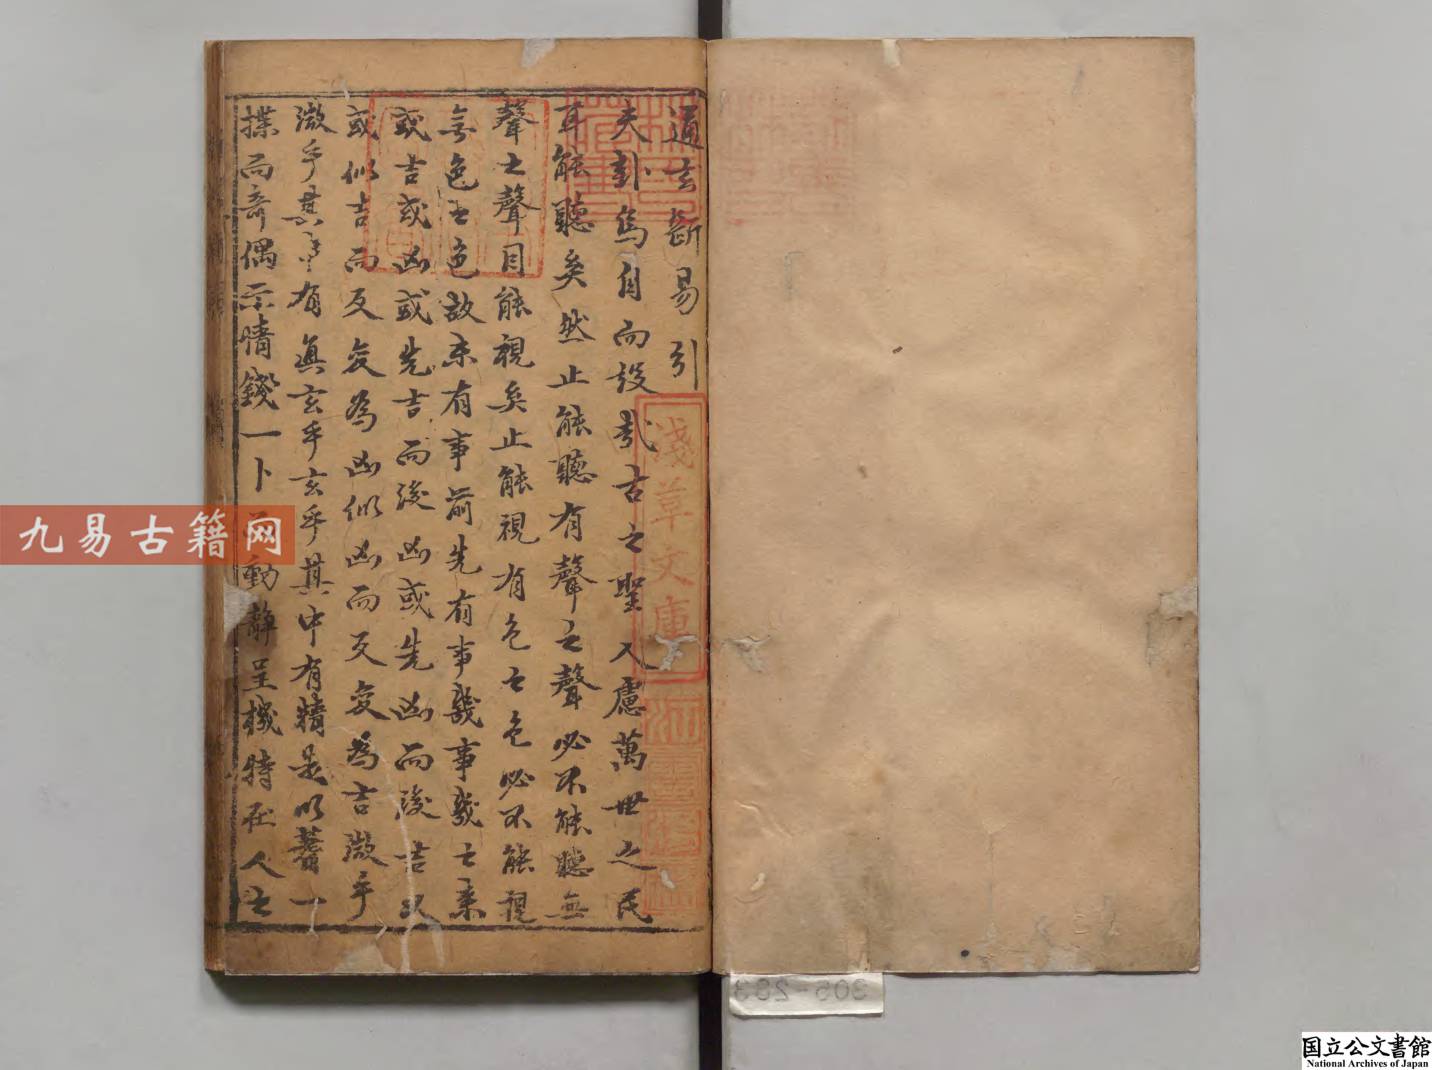 通玄斷易引
夫卦焉自而設哉古之聖人慮萬世之民
耳能聽矣然止能聽有聲之聲必不能聽無
聲之聲目能視矣止能視有色之色必不能視
無色之色故未有事前先有事幾事幾之兆
或吉或凶或先吉而後凶或先凶而後吉以
或似吉而反変為凶似凶而反変為吉微乎
微乎其中有真玄乎玄乎其中有精是以蓍一
揲而奇偶示情錢一卜動靜呈機特在人之
淺草文庫
九易古籍网
305-283
国立公文書館
National Archives of Japan